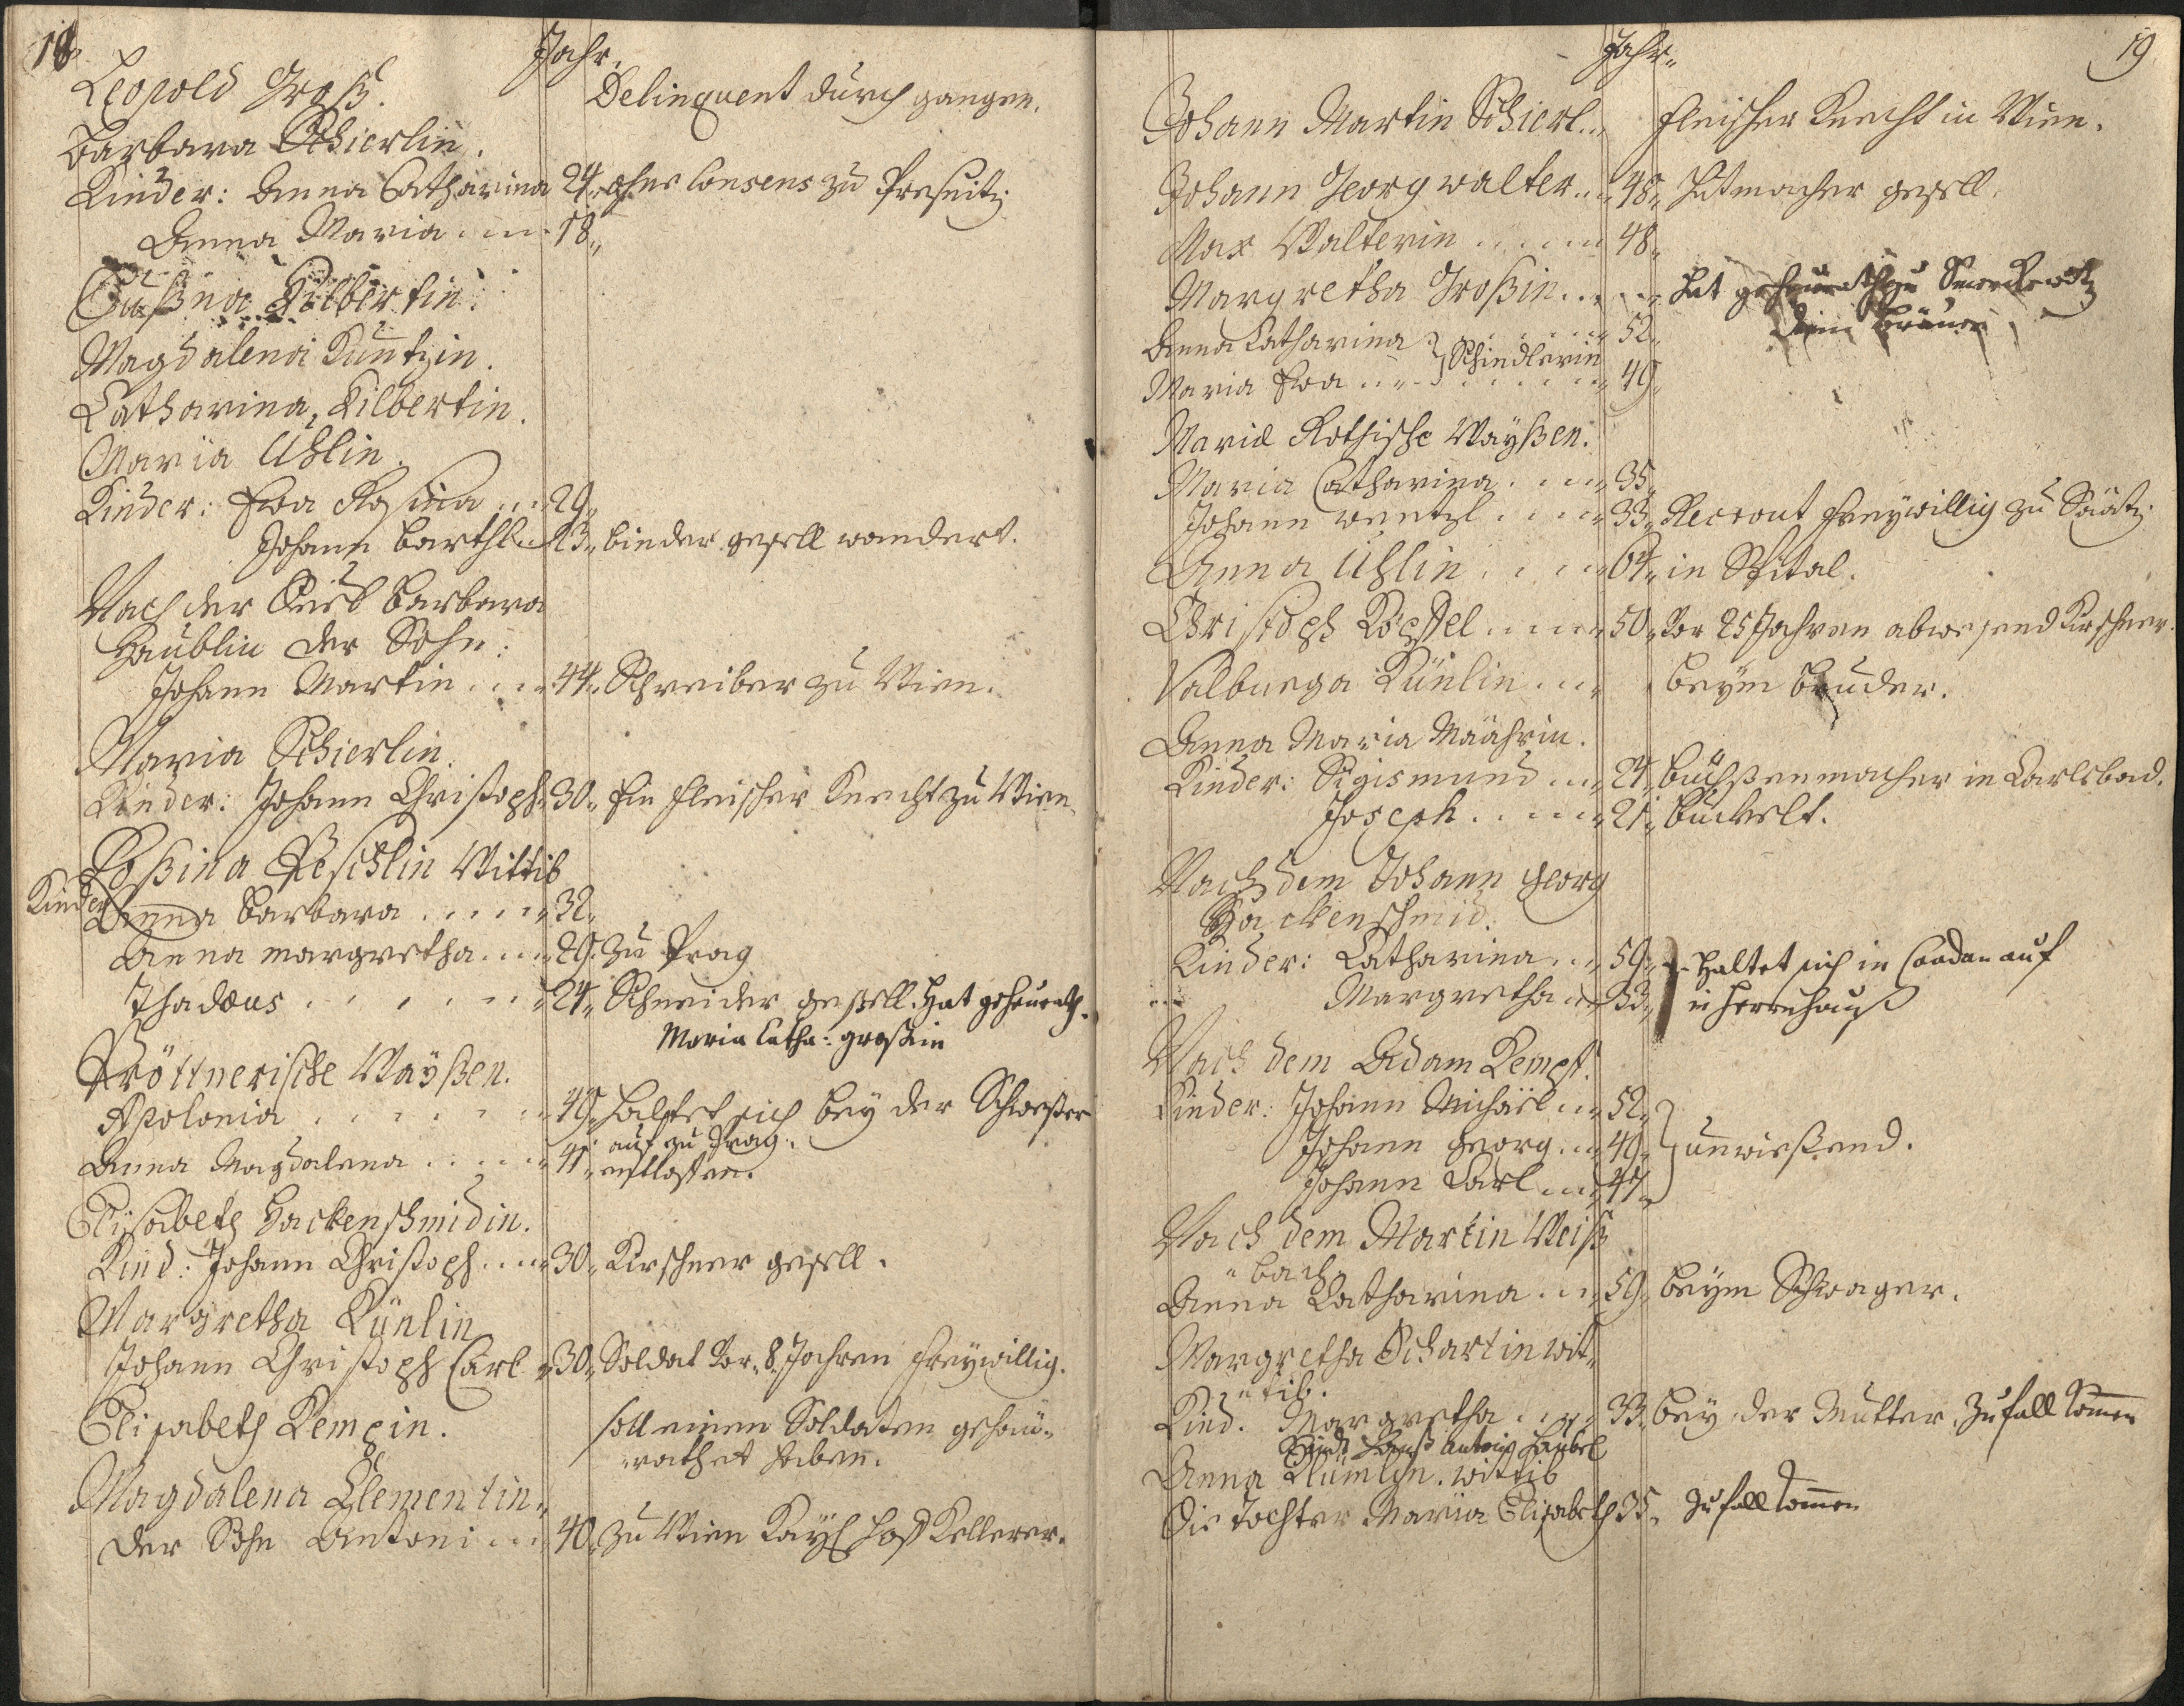 18
Jahr.
Leopold Groß. Delinquent durch gangen.
Barbara Schierlin.
Kinder: Anna Catharina 24 ohne Consens zu Preßnitz
Anna Maria 18
Kilbertin.
Magdalena Kuntzin.
Catharina, Kilbertin.
Maria Uhlin.
Kinder: Eva Rosina 29
Johann Barthl 23 binder gesell wandert.
Nach der Barbara
Haublin der Sohn:
Johann Martin 44 Schreiber zu Wien.
Maria Schierlin.
Kinder: Johann Christoph 30 Ein fleischer Knecht zu Wien
Roßina Peschlin Wittib
Kinder Anna Barbara 32
Anna Margretha 29 zu Prag
Thadæus 24 Schneider gesell. Hat geheurath.
Maria Catha: großin
Pröttnerische Waÿßen.
Apolonia 49 haltet sich beÿ der Schwester
auf zu Prag.
Anna Magdalena 41 entlassen.
Elisabeth Hackenschmidin.
Kind: Johann Christoph 30 Kirschner gesell.
Margretha Künlin
Johann Christoph Carl 30 Soldat vor 8 Jahren freÿwillig.
Elisabeth Kempin. soll einen Soldaten geheu-
rathet haben.
Magdalena Clementin
Der Sohn Antoni 40 zu Wien Kaÿ: hoff Kellerer.
19
Jahr
Johann Martin Schierl fleischer Knecht in Wien.
Johann Georg Walter 48 Hutmacher gesell.
Max Walterin 48
Margretha Großin hat geheurath zu
dem Bräuer
Anna Catharina 52
Schindlerin
Maria Eva 49
Maria Rothische Waÿßen.
Maria Catharina 35
Johann Wentzl 33 Recrout freÿwillig zu Saatz.
Anna Uhlin 64 in Spital.
Christoph Köppel 50 Vor 25 Jahren abwesend Kirschner.
Walburga Künlin beÿm Bruder.
Anna Maria Mäährin.
Kinder: Sigismund 24 büchßenmacher in Carlsbad.
Joseph 21 buckelt.
Nach dem Johann Georg
Hackenschmid.
Kinder: Catharina 59 haltet sich in Caadan auf
Margretha 53 in Herrnhauß
Nach dem Adam Kempf.
Kinder: Johann Michäel 52
Johann Georg 49 unwißend.
Johann Carl 47
Nach dem Martin Weiß
bach
Anna Catharina 59 beÿm Schwager.
Margretha Schartin wit
tib.
Kind. Margretha 33 beÿ der Mutter. Zu fall komen
Hanß Antoni Haubel
Anna Klümlin. wittib
Die Tochter Maria Elisabeth 35 Zu fall komen